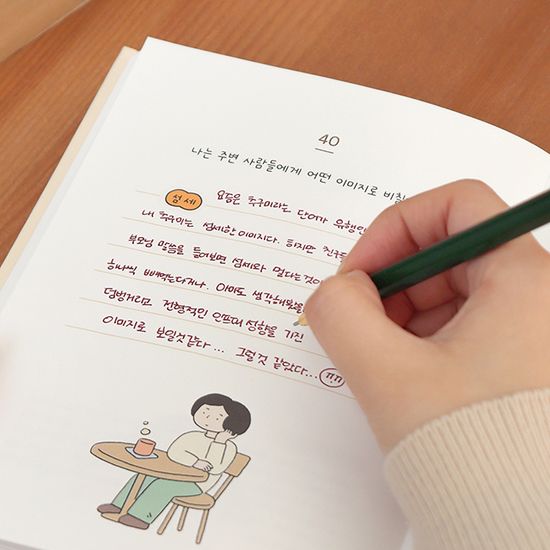 40
나는 주변 사람들에게 어떤 이미지로 비칠
섬세
요즘은 추구미라는 단어가 유행인
내 추구미는 섬세한 이미지다. 하지만 친구들
부모님 말씀을 들어보면 섬세와 멀다는것이
하나씩 빼먹는다거나. 아마도 생각해보면
덤벙거리고 전형적인 인프피 성향을 가진
이미지로 보일것같다... 그럴것 같았다...